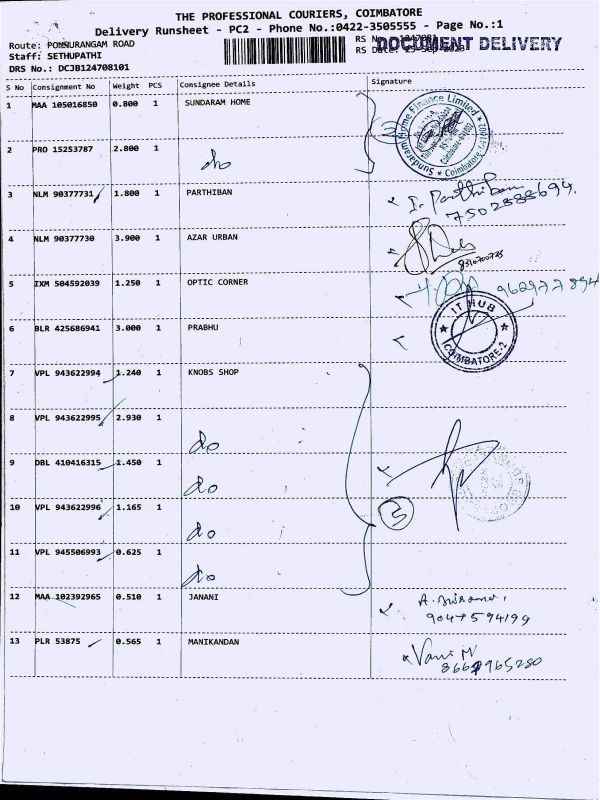 THE PROFESSIONAL COURIERS, COIMBATORE
Delivery Runsheet - PC2 - Phone No.:0422-3505555 - Page No.:1
Route: PONNURANGAM ROAD
RS No
DOCUMENT DELIVERY
Staff: SETHUPATHI
RS Date
DRS No.: DCJB124708101
S No Consignment No Weight PCS Consignee Details Signature
1 MAA 105016850 0.800 1 SUNDARAM HOME
Sundaram Home Finance Limited * Coimbatore
2 PRO 15253787 2.800 1
do
3 NLM 90377731 1.800 1 PARTHIBAN
I. Parthiban
7502888694.
4 NLM 90377730 3.900 1 AZAR URBAN
8310700735
5 IXM 504592039 1.250 1 OPTIC CORNER
9629777894
6 BLR 425686941 3.000 1 PRABHU
IT HUB
COIMBATORE-2
7 VPL 943622994 1.240 1 KNOBS SHOP
8 VPL 943622995 2.930 1
do
9 DBL 410416315 1.450 1
do
10 VPL 943622996 1.165 1
do
5
11 VPL 945506993 0.625 1
do
12 MAA 102392965 0.510 1 JANANI
9047594199
13 PLR 53875 0.565 1 MANIKANDAN
Vani M
8667965280